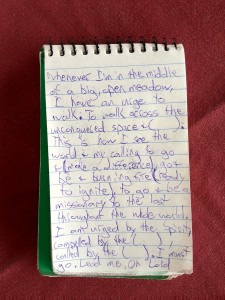 Whenever I'm in the middle
of a big, open meadow,
I have an urge to
walk. To walk across the
unconquered space & (      ).
This is how I see the
world & my calling to go
& make a difference, go &
be a burning fire ready
to ignite, to go & be a
missionary to the lost
throughout the whole world.
I am urged by the Spirit,
compelled by the (      ),
called by the (      ). I must
go. Lead me, Oh Lord